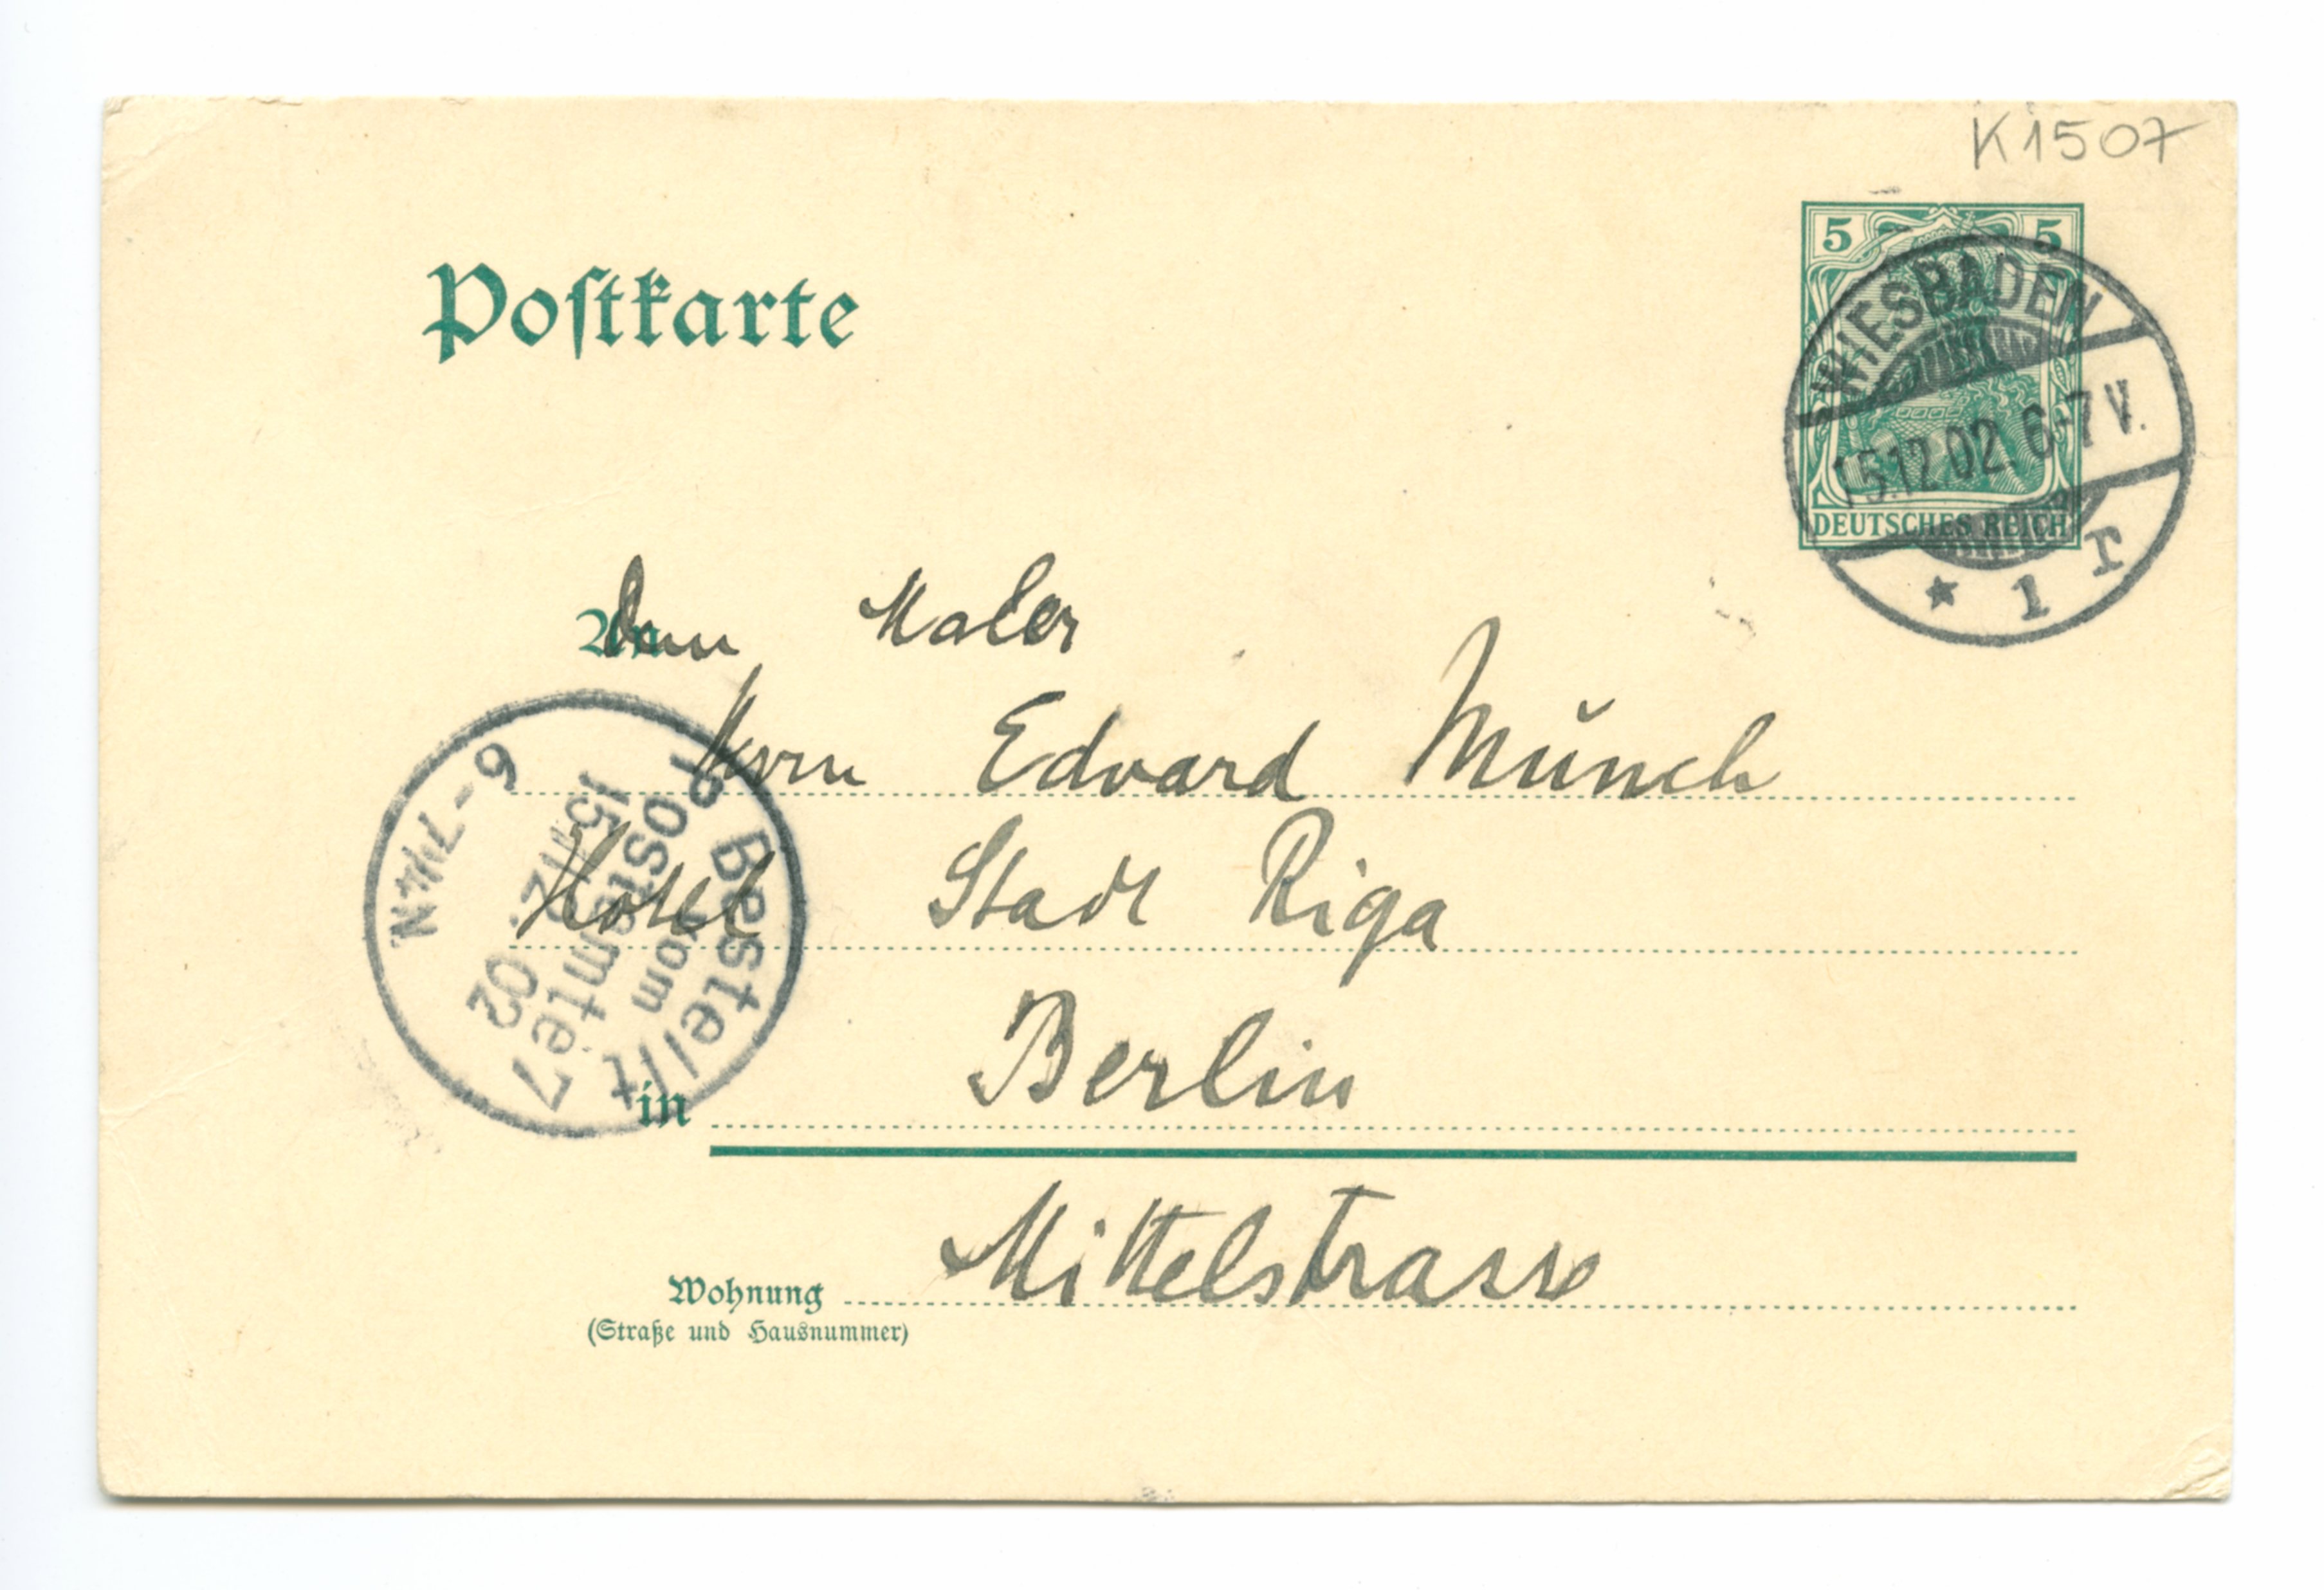 K1507
Postkarte
5 5
WIESBADEN
15.12.02. 6-7 V.
DEUTSCHES REICH
* 1 r
An
Dem Maler
Herrn Edvard Münch
Hotel Stadt Riga
in Berlin
Wohnung Mittelstrasse
(Straße und Hausnummer)
Bestellt
vom
Postamte 7
15/12. 02
6-7¼N